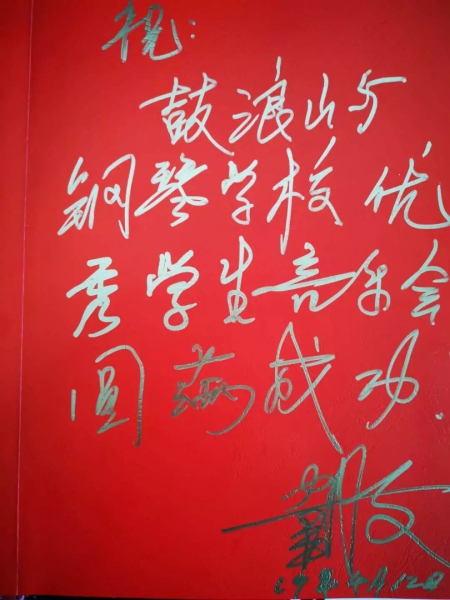 祝：
鼓浪屿
钢琴学校优
秀学生音乐会
圆满成功